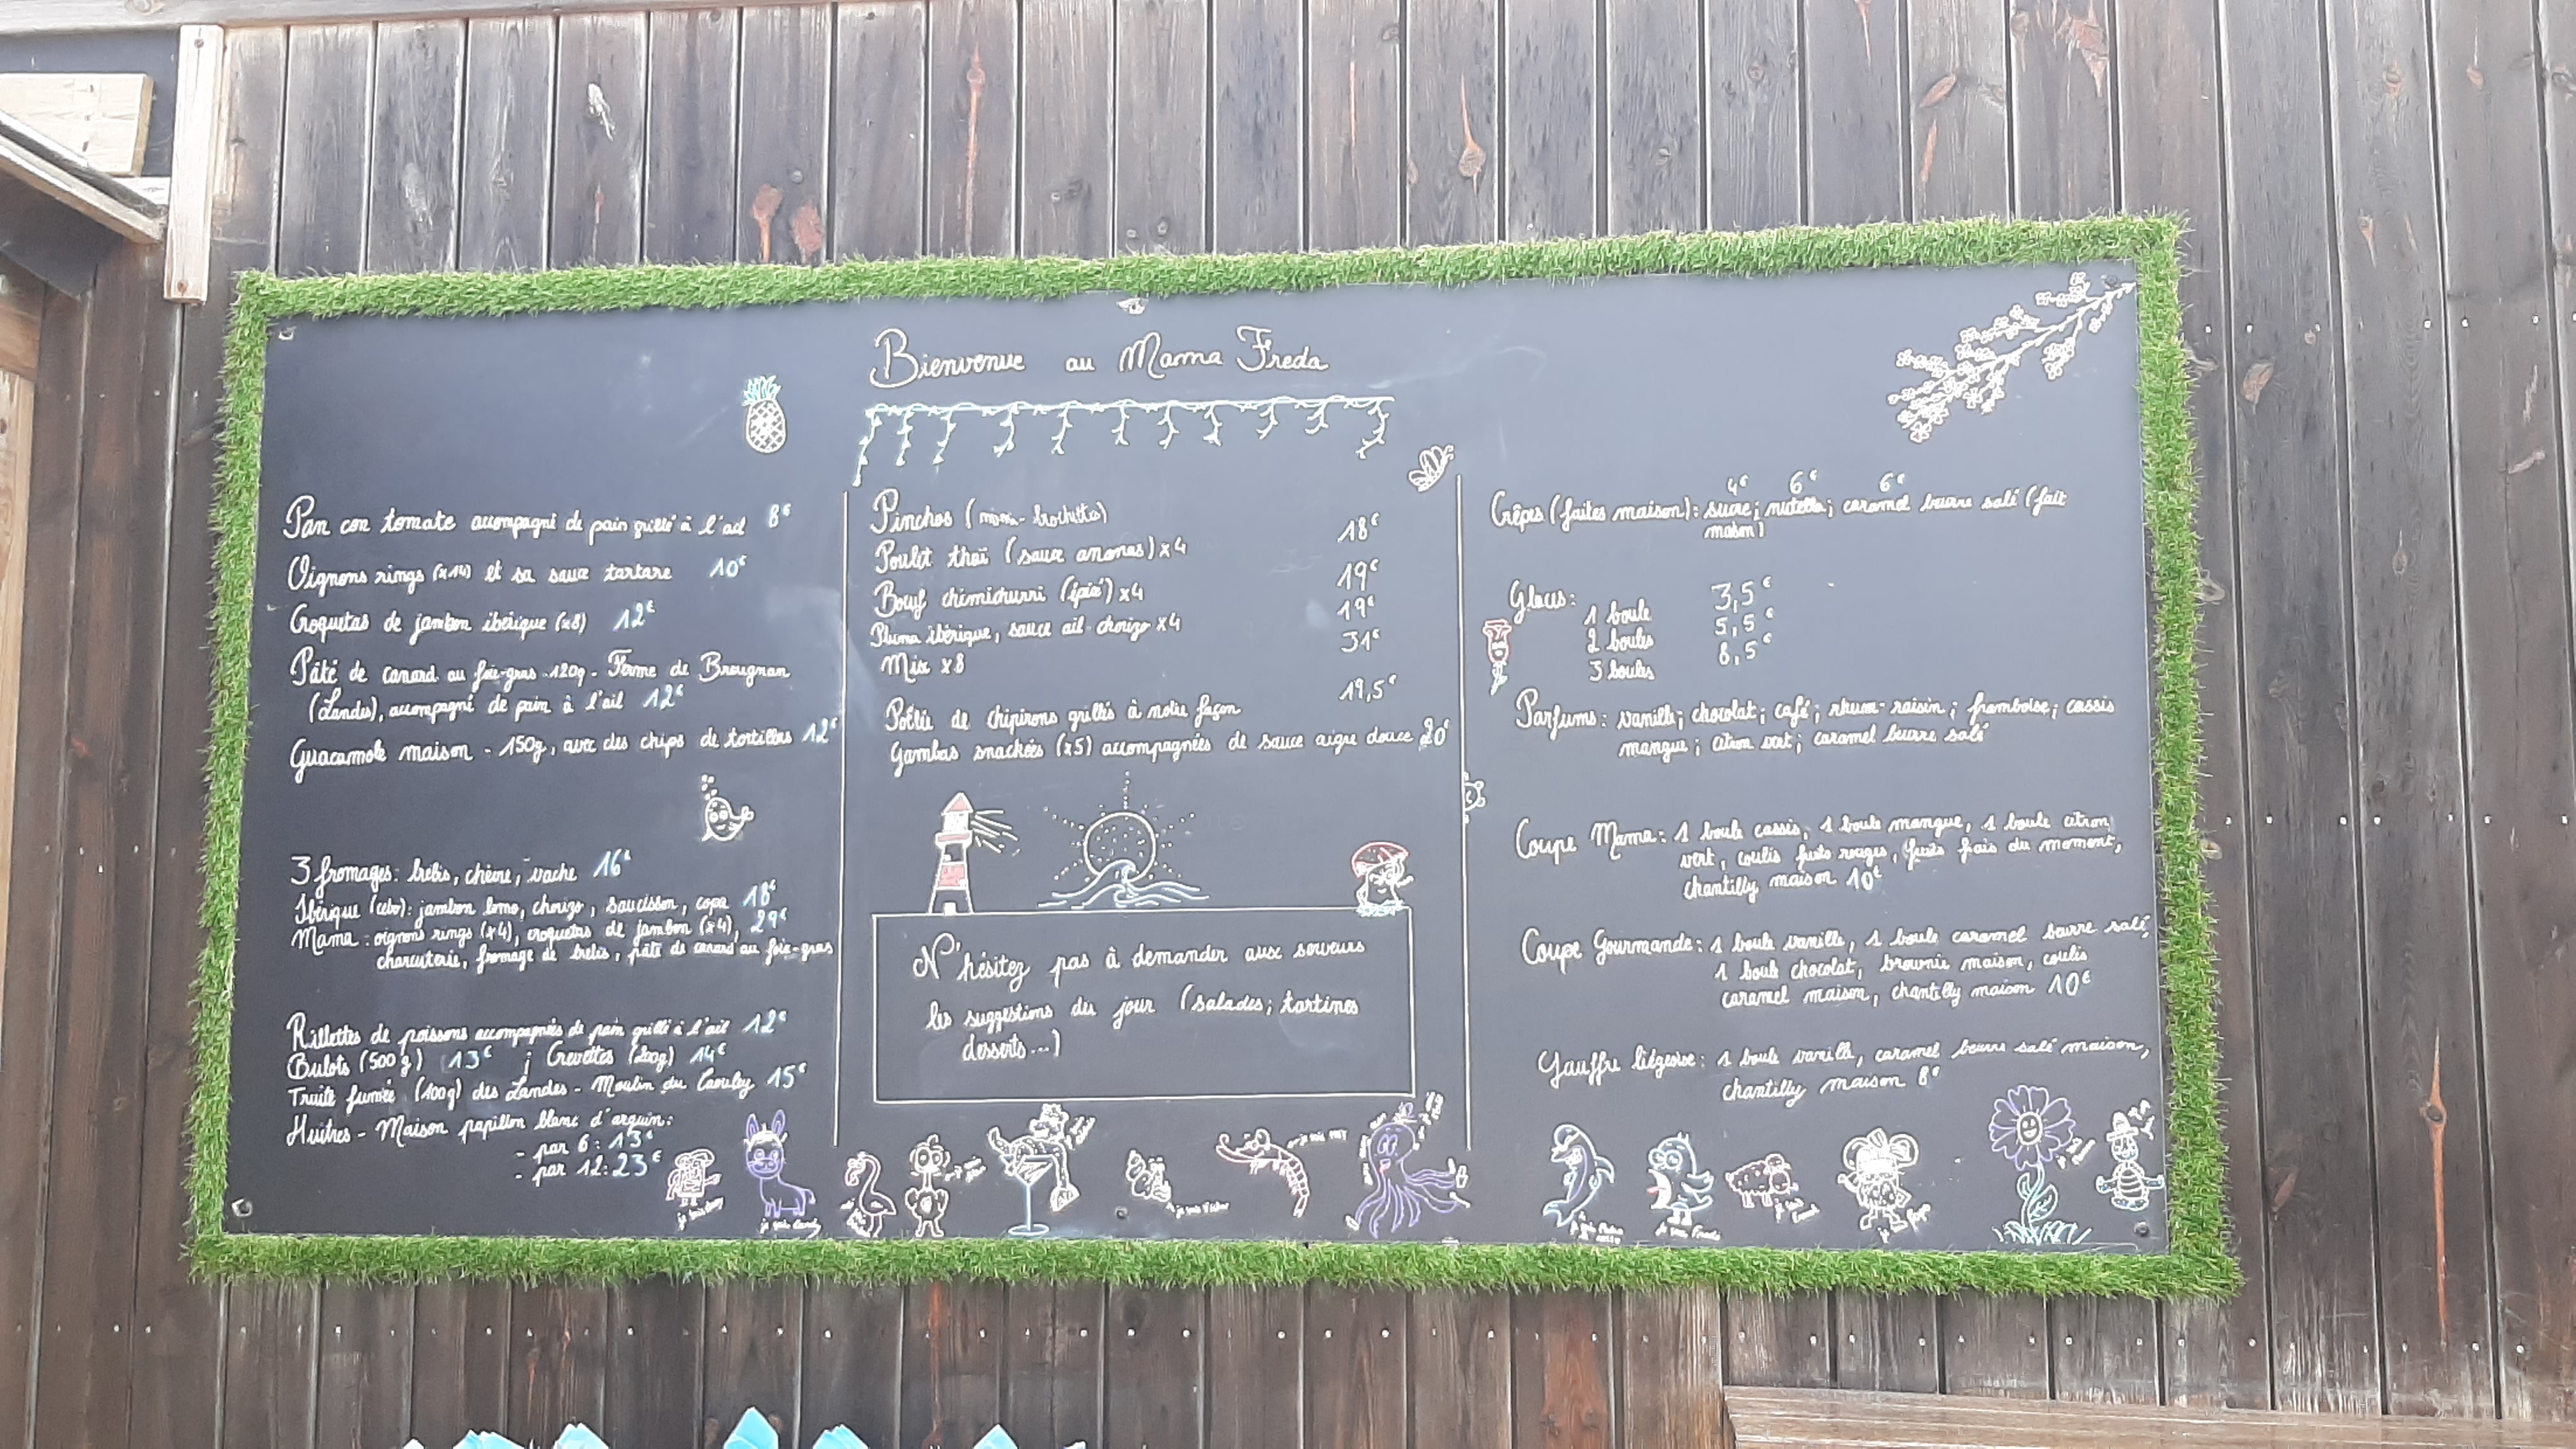 Bienvenue au Mama Freda
Pan con tomate accompagné de pain grillé à l'ail 8€
Oignons rings (x14) et sa sauce tartare 10€
Croquetas de jambon ibérique (x8) 12€
Pâté de canard au foie-gras 120g - Ferme de Breugnan
(Landes), accompagné de pain à l'ail 12€
Guacamole maison - 150g, avec des chips de tortillas 12€
3 fromages: brebis, chèvre, vache 16€
Ibérique (cebo): jambon lomo, chorizo, saucisson, copa 18€
Mama: oignons rings (x4), croquetas de jambon (x4), 29€
charcuterie, fromage de brebis, pâté de canard au foie-gras
Rillettes de poissons accompagnées de pain grillé à l'ail 12€
Bulots (500g) 13€ ; Crevettes (200g) 14€
Truite fumée (100g) des Landes - Moulin du Caouley 15€
Huîtres - Maison papillon blanc d'arguin:
- par 6: 13€
- par 12: 23€
Pinchos (mini-brochettes)
Poulet thaï (sauce ananas) x4 18€
Bœuf chimichurri (épicé) x4 19€
Pluma ibérique, sauce ail-chorizo x4 19€
Mix x8 31€
Poêlée de chipirons grillés à notre façon 19,5€
Gambas snackées (x5) accompagnées de sauce aigre douce 20€
N'hésitez pas à demander aux serveurs
les suggestions du jour (salades; tartines
desserts...)
4€ 6€ 6€
Crêpes (faites maison): sucre; nutella; caramel beurre salé (fait
maison)
Glaces:
1 boule 3,5€
2 boules 5,5€
3 boules 8,5€
Parfums: vanille; chocolat; café; rhum-raisin; framboise; cassis
mangue; citron vert; caramel beurre salé
Coupe Mama: 1 boule cassis, 1 boule mangue, 1 boule citron
vert, coulis fruits rouges, fruits frais du moment,
chantilly maison 10€
Coupe Gourmande: 1 boule vanille, 1 boule caramel beurre salé,
1 boule chocolat, brownie maison, coulis
caramel maison, chantilly maison 10€
Gauffre liégeoise: 1 boule vanille, caramel beurre salé maison,
chantilly maison 8€
je suis
je suis Candy
je suis
je suis
je suis
je suis